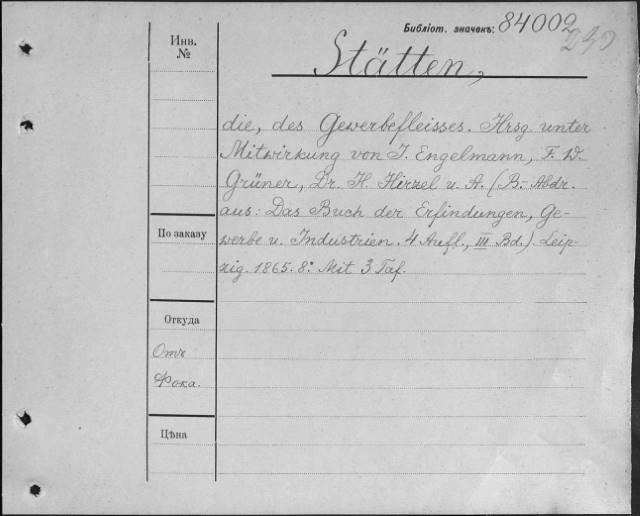 Библіот. значекъ: 84002
Инв.
№
Stätten,
die, des Gewerbefleisses. Hrsg. unter
Mitwirkung von J. Engelmann, F. W.
Grüner, Dr. H. Hirzel u. A. (B.- Abdr.
aus: Das Buch der Erfindungen, Ge-
werbe u. Industrien. 4 Aufl., III Bd.). Leip-
zig. 1865. 8º. Mit 3 Taf.
По заказу
Откуда
Отъ
Фока.
Цѣна